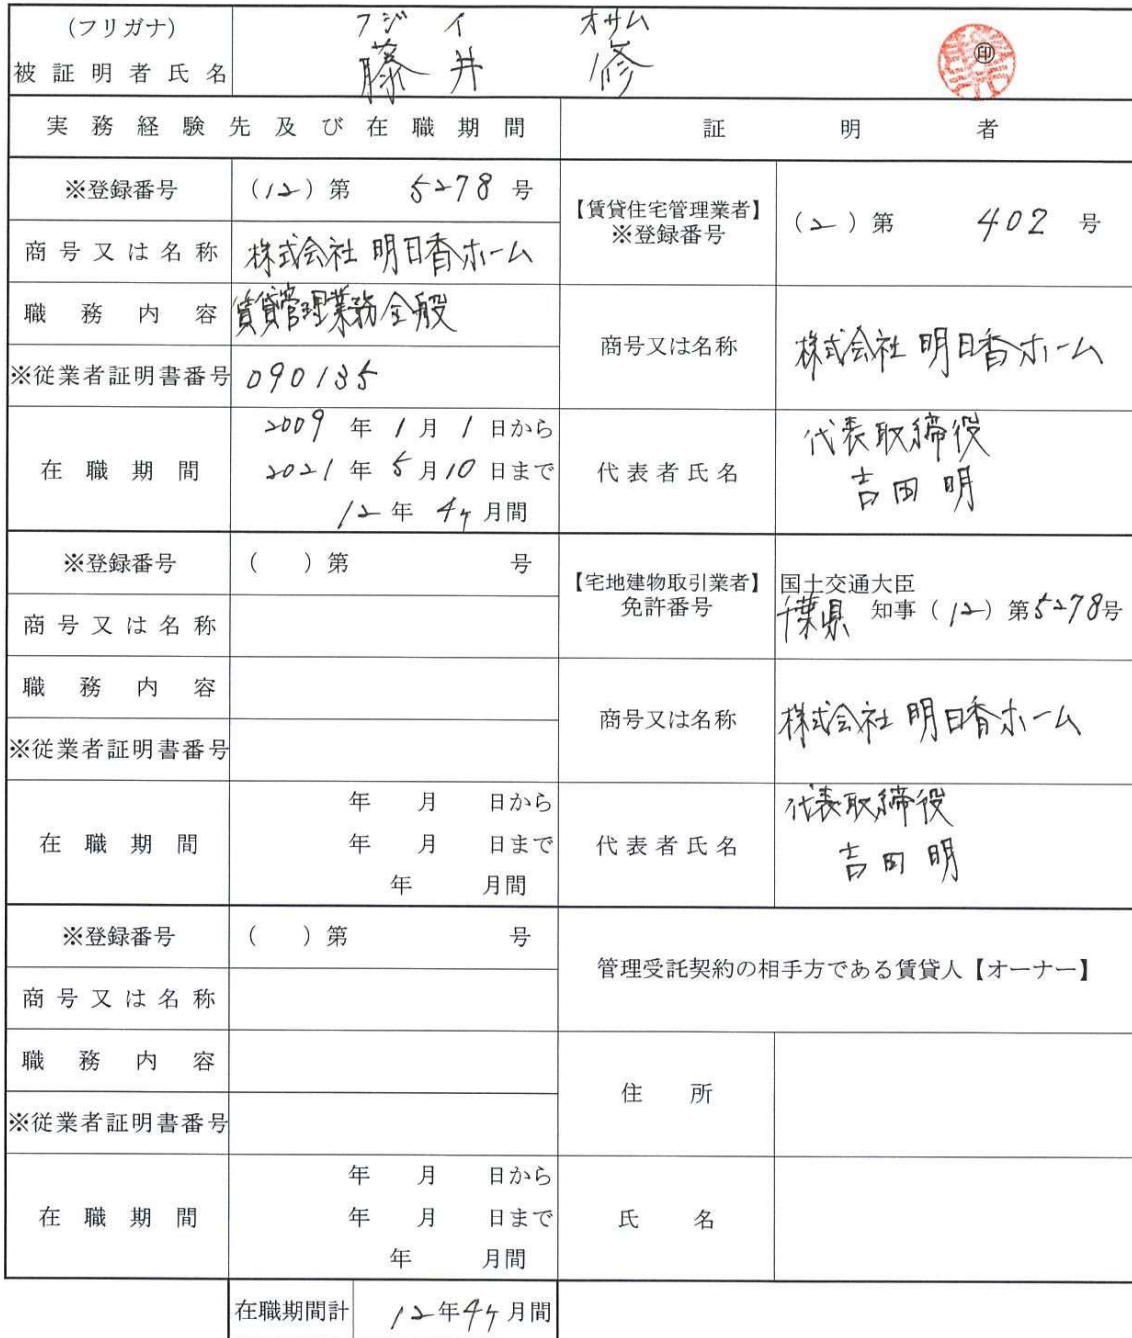 (フリガナ) フジイ オサム
被証明者氏名 藤井 修 ㊞
実務経験先及び在職期間 証明者
※登録番号 (12)第 5278 号
商号又は名称 株式会社 明日香ホーム
職務内容 賃貸管理業務全般
※従業者証明書番号 090135
在職期間 2009 年 1 月 1 日から
2021 年 5 月 10 日まで
12 年 4ヶ 月間
【賃貸住宅管理業者】
※登録番号 (2)第 402 号
商号又は名称 株式会社 明日香ホーム
代表者氏名 代表取締役
吉田 明
※登録番号 ( )第 号
商号又は名称
職務内容
※従業者証明書番号
在職期間 年 月 日から
年 月 日まで
年 月間
【宅地建物取引業者】
免許番号 国土交通大臣
千葉県 知事 (12)第5278号
商号又は名称 株式会社 明日香ホーム
代表者氏名 代表取締役
吉田 明
※登録番号 ( )第 号
商号又は名称
職務内容
※従業者証明書番号
在職期間 年 月 日から
年 月 日まで
年 月間
管理受託契約の相手方である賃貸人【オーナー】
住所
氏名
在職期間計 12年4ヶ月間